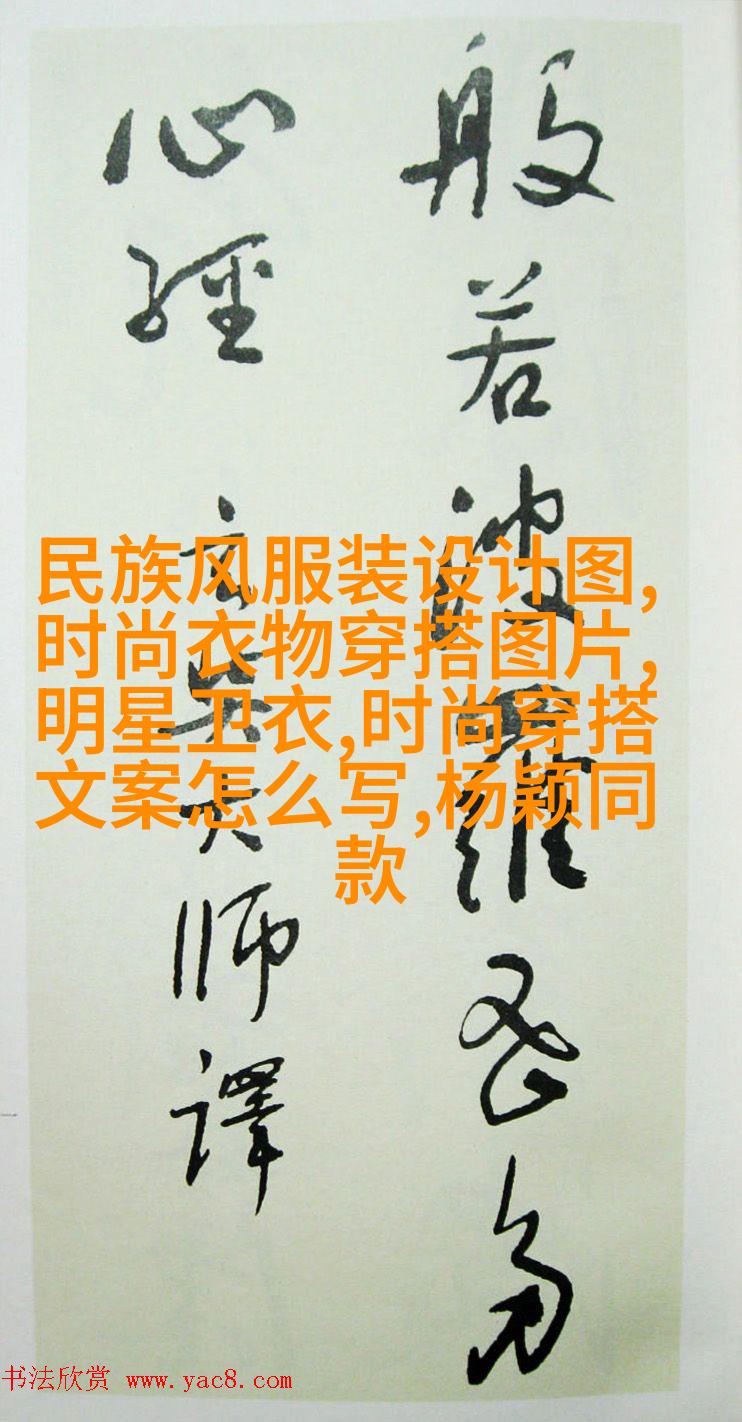 般若波羅蜜多
心經 玄奘大師譯
民族风服装设计图,
时尚衣物穿搭图片,
明星卫衣,时尚穿搭
文案怎么写,杨颖同
款
书法欣赏 www.yac8.com